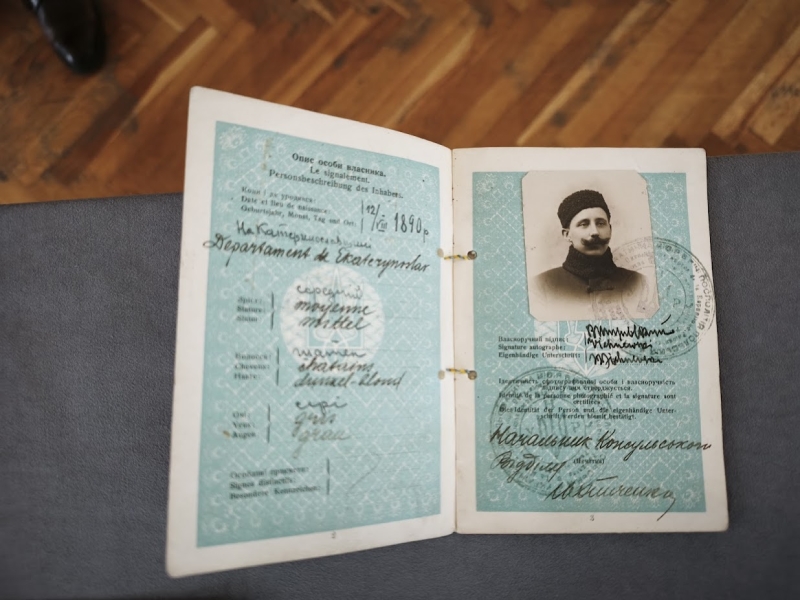 Опис особи власника.
Le signalement.
Personsbeschreibung des Inhabers.
Коли і де уродився:
Date et lieu de naissance:
Geburtsjahr, Monat, Tag und Ort:
12/VIII 1890 р
На Катеринославщині
Departament de Ekaterynoslav
Зріст:
Stature:
Statur:
середній
moyenne
mittel
Волосся:
Cheveux:
Haare:
шатен
chatains
dunkel-blond
Очі:
Yeux:
Augen:
сірі
gris
grau
Особливі прикмети:
Signes distinctifs:
Besondere Kennzeichen:
2
Власноручний підпис:
Signature autographe:
Eigenhändige Unterschrift:
Ідентичність сфотографованої особи і власноручність
підпису
Identité de la personne photographiée et la signature sont
certifiées
Die Identität der Person und die eigenhändige Unter-
schrift werden hiemit bestätigt.
Начальник Консульського
Відділу
3